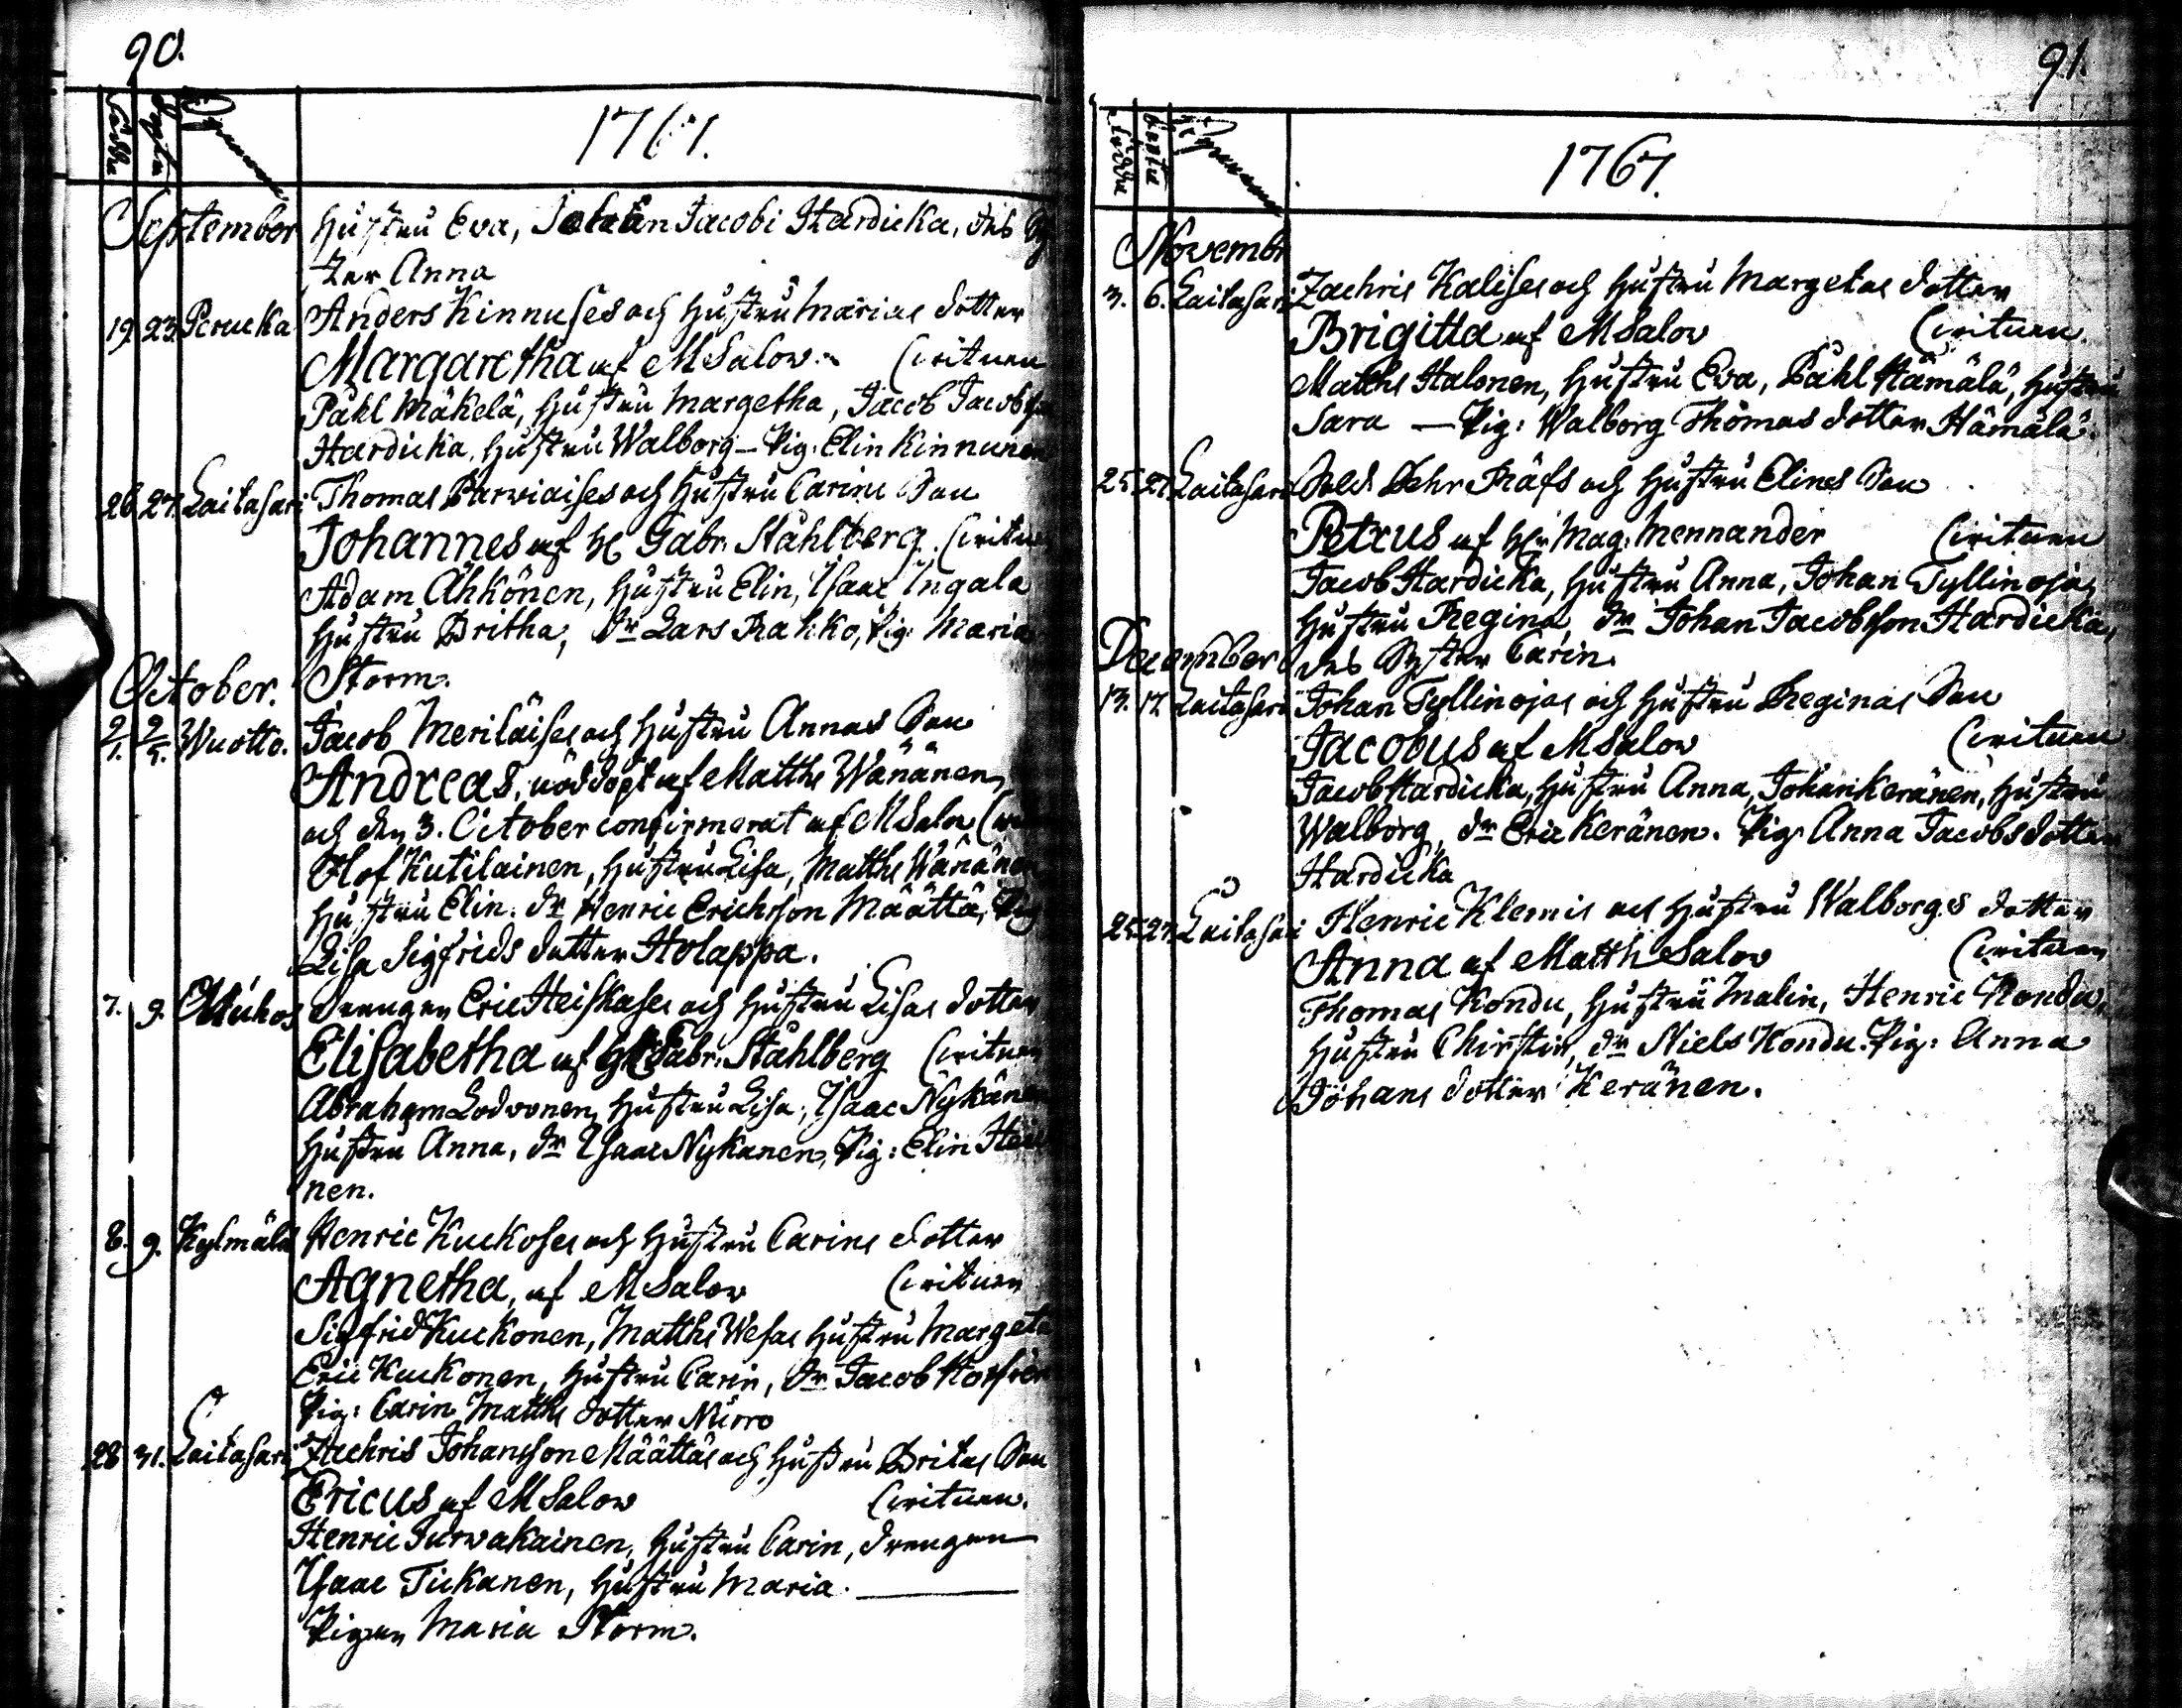 90.
Födde Döpte Bynamn
1767.
September
hustru Eva, Johan Jacobi Hardicka, des Sy
ster Anna
19. 23. Perucka Anders Kinnuses och hustru Marias dotter
Margaretha af M Salov. Cirituen
Påhl Mäkelä, hustru Margetha, Jacob Jacobson
Hardicka, hustru Walborg — Pig: Elin Kinnunen
26. 27. Laitasari Thomas Parviaises och hustru Carins Son
Johannes af H Gabr. Ståhlberg. Cirituen
Adam Åhkönen, hustru Elin, Isaac Ingala
hustru Britha, Dr Lars Rahko, Pig: Maria
Storm.
October.
2/1. 2/5. Wuotto. Jacob Meriläises och hustru Annas Son
Andreas, nöddöpt af Matths Wänänen,
och den 3. October confirmerat af M Salov
Olof Kutilainen, hustru Lisa, Matths Wänänen
hustru Elin. Dr Henric Erichsson Määttä, Pig
Lisa Sigfrids dotter Holappa.
7. 9. Muhos Drengen Eric Heiskases och hustru Lisas dotter
Elisabetha af H Gabr. Ståhlberg Cirituen
Abraham Lodvonen, hustru Lisa, Isaac Nykänen
hustru Anna, Dr Isaac Nykanen, Pig: Elin Heick
nen.
8. 9. Kylmälä Henric Kuckoses och hustru Carins dotter
Agnetha, af M Salov Cirituen
Sigfrid Kuckonen, Matths Wesas hustru Margeta
Eric Kuckonen, hustru Carin, Dr Jacob
Pig: Carin Matths dotter Nurro
28. 31. Laitasari Zachris Johansson Määttäs och hustru Britas Son
Ericus af M Salov Cirituen.
Henric Turvakainen, hustru Carin, drengen
Isaac Tickanen, hustru Maria.
Pigan Maria Storm.
91.
Födde Döpte Bynamn
1767.
Novembr
3. 6. Laitasari Zachris Kalises och hustru Margetas dotter
Brigitta af M Salov Cirituen.
Matths Halonen, hustru Eva, Påhl Hämälä, hustru
Sara — Pig: Walborg Thomas dotter Hämälä.
25. 27. Laitasari Sold. Pehr Räfs och hustru Elines Son
Petrus af Hr Mag: Mennander Cirituen
Jacob Hardicka, hustru Anna, Johan Tyllinoja,
hustru Regina, Dr Johan Jacobsson Hardicka,
des Syster Carin.
December
13. 17. Laitasari Johan Tyllinojas och hustru Reginas Son
Jacobus af M Salov Cirituen
Jacob Hardicka, hustru Anna, Johan Keränen, hustru
Walborg, Dr Eric Keränen. Pig: Anna Jacobs dotter
Hardicka
25. 27. Laitasari Henric Klemis och hustru Walborgs dotter
Anna af Matth Salov Cirituen
Thomas Kondu, hustru Malin, Henric Kondu,
hustru Chirstin, Dr Niels Kondu. Pig: Anna
Johans dotter Keränen.